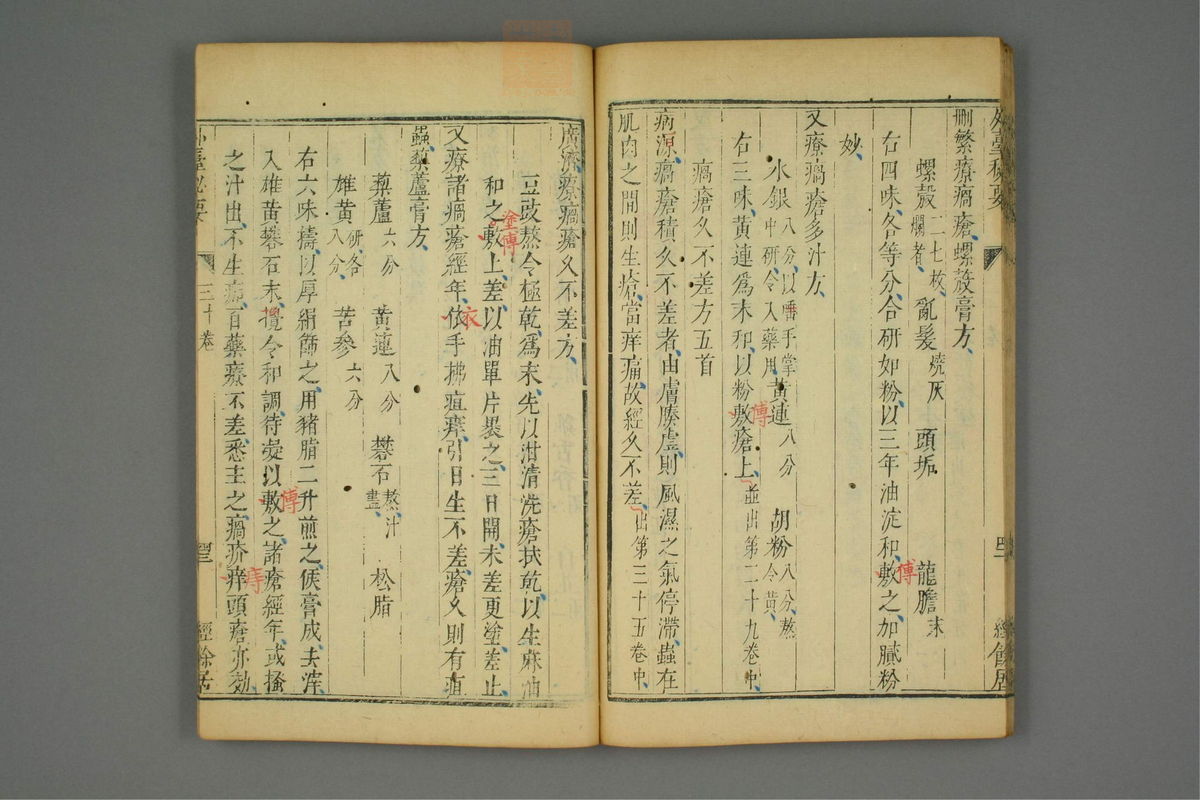 外臺秘要
經餘居
刪繁療瘑瘡螺殼膏方
螺殼二七枚爛者亂髮燒灰 頭垢 龍膽末
右四味各等分合研如粉以三年油淀和敷之加膩粉
傅
妙
又療瘑瘡多汁方
水銀八分以唾手掌中研令入藥用黃連八分 胡粉八分熬令黃
右三味黃連爲末和以粉敷瘡上並出第二十九卷中
傅
瘑瘡久不差方五首
病源瘑瘡積久不差者由膚腠虛則風濕之氣停滯蟲在
肌肉之間則生瘡當痒痛故經久不差出第三十五卷中
廣濟療瘑瘡久不差方
豆豉熬令極乾爲末先以泔清洗瘡拭乾以生麻油
和之敷上差以油單片裹之三日開未差更塗差止
塗傅
又療諸瘑瘡經年依手拂疽痹引日生不差瘡久則有疽
衣
蟲藜蘆膏方
藜蘆六分 黃連八分 礬石熬汁盡 松脂
雄黃研各八分 苦參六分
右六味擣以厚絹篩之用豬脂二升煎之候膏成去滓
入雄黃礬石末攪令和調待凝以敷之諸瘡經年或搔
傅
之汁出不生痂百藥療不差悉主之瘑疥痒頭瘡亦効
痔
外臺秘要
三十卷
經餘居